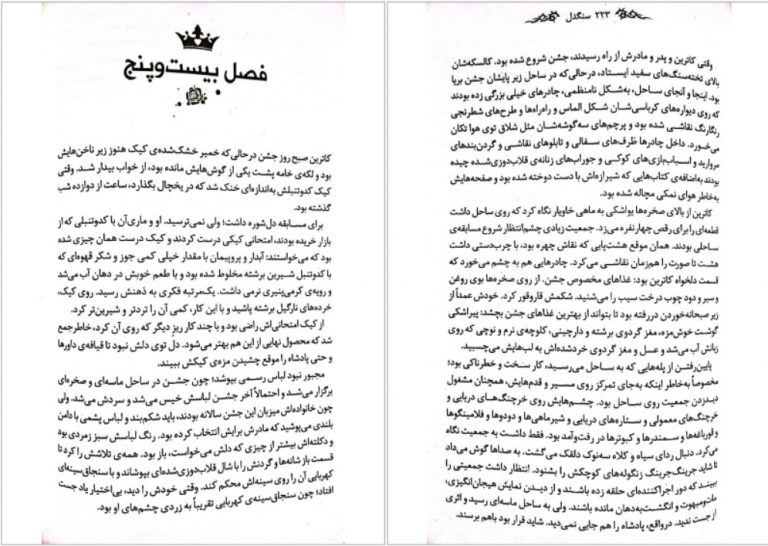 فصل بیست‌وپنج
کاترین صبح روز جشن درحالی‌که خمیر خشک‌شده‌ی کیک هنوز زیر ناخن‌هایش
بود و لکه‌ی خامه پشت یکی از گوش‌هایش مانده بود، از خواب بیدار شد. وقتی
کیک کدوتنبلش به‌اندازه‌ای خنک شد که در یخچال بگذارد، ساعت از دوازده شب
گذشته بود.
برای مسابقه دل‌شوره داشت؛ ولی نمی‌ترسید. او و ماری‌آن با کدوتنبلی که از
بازار خریده بودند، امتحانی کیکی درست کردند و کیک درست همان چیزی شده
بود که می‌خواستند: آبدار و پروپیمان با مقدار خیلی کمی جوز و شکر قهوه‌ای که
با کدوتنبل شیرین برشته مخلوط شده بود و با طعم خوبش در دهان آب می‌شد
و رویه‌ی کرمی‌پنیری نرمی داشت. یک‌مرتبه فکری به ذهنش رسید. روی کیک،
خرده‌های نارگیل برشته پاشید و با این کار، کمی آن را تردتر و شیرین‌تر کرد.
از کیک امتحانی‌اش راضی بود و با چند کار ریز دیگر که روی آن کرد، خاطرجمع
شد که محصول نهایی از این هم بهتر می‌شود. دل توی دلش نبود تا قیافه‌ی داورها
و حتی پادشاه را موقع چشیدن مزه‌ی کیکش ببیند.
مجبور نبود لباس رسمی بپوشد؛ چون جشن در ساحل ماسه‌ای و صخره‌ای
برگزار می‌شد و احتمالاً آخر جشن لباسش خیس می‌شد و سردش می‌شد. ولی
چون خانواده‌اش میزبان این جشن سالانه بودند، باید شکم‌بند و لباس پشمی با دامن
بلندی می‌پوشید که مادرش برایش انتخاب کرده بود. رنگ لباسش سبز زمردی بود
و دکلته‌اش بیشتر از چیزی که دلش می‌خواست، باز بود. همه‌ی تلاشش را کرد تا
قسمت باز شانه‌ها و گردنش را با شال قلاب‌دوزی‌شده‌ای بپوشاند و با سنجاق‌سینه‌ای
کهربایی آن را روی سینه‌اش محکم کند. وقتی خودش را دید، بی‌اختیار یاد جست
افتاد؛ چون سنجاق‌سینه‌ی کهربایی تقریباً به زردی چشم‌های او بود.
۲۲۳ سنگدل
وقتی کاترین و پدر و مادرش از راه رسیدند، جشن شروع شده بود. کالسکه‌شان
بالای تخته‌سنگ‌های سفید ایستاد، درحالی‌که در ساحل زیر پایشان جشن برپا
بود. اینجا و آنجای ساحل، به‌شکل نامنظمی، چادرهای خیلی بزرگی زده بودند
که روی دیواره‌های کرباسی‌شان شکل الماس و راه‌راه‌ها و طرح‌های شطرنجی
رنگارنگ نقاشی شده بود و پرچم‌های سه‌گوشه‌شان مثل شلاق توی هوا تکان
می‌خورد. داخل چادرها ظرف‌های سفالی و تابلوهای نقاشی و گردن‌بندهای
مروارید و اسباب‌بازی‌های کوکی و جوراب‌های زنانه‌ی قلاب‌دوزی‌شده چیده
بودند به‌اضافه‌ی کتاب‌هایی که شیرازه‌اش با دست دوخته شده بود و صفحه‌هایش
به‌خاطر هوای نمکی مچاله شده بود.
کاترین از بالای صخره‌ها یواشکی به ماهی خاویار نگاه کرد که روی ساحل داشت
قطعه‌ای را برای رقص چهارنفره می‌زد. جمعیت زیادی چشم‌انتظار شروع مسابقه‌ی
ساحلی بودند. همان موقع هشت‌پایی که نقاش چهره بود، با چرب‌دستی داشت
هشت تا صورت را هم‌زمان نقاشی می‌کرد. چادرهایی هم به چشم می‌خورد که
قسمت دلخواه کاترین بود: غذاهای مخصوص جشن. از روی صخره‌ها بوی روغن
و سیر و دود چوب درخت سیب را می‌شنید. شکمش قاروقور کرد. خودش عمداً از
زیر صبحانه‌خوردن دررفته بود تا بتواند از بهترین غذاهای جشن بچشد: پیراشکی
گوشت خوش‌مزه، مغز گردوی برشته و دارچینی، کلوچه‌ی نرم و نوچی که روی
زبانش آب می‌شد و عسل و مغز گردوی خردشده‌اش به لب‌هایش می‌چسبید.
پایین‌رفتن از پله‌هایی که به ساحل می‌رسید، کار سخت و خطرناکی بود؛
مخصوصاً به‌خاطر اینکه به‌جای تمرکز روی مسیر و قدم‌هایش، همچنان مشغول
دیدزدن جمعیت روی ساحل بود. چشم‌هایش روی خرچنگ‌های دریایی و
خرچنگ‌های معمولی و ستاره‌های دریایی و شیرماهی‌ها و دودوها و فلامینگوها
و قورباغه‌ها و سمندرها و کبوترها در رفت‌وآمد بود. فقط داشت به جمعیت نگاه
می‌کرد. دنبال ردای سیاه و کلاه سه‌نوک دلقک می‌گشت. به صداها گوش می‌داد
تا شاید جرینگ‌جرینگ زنگوله‌های کوچکش را بشنود. انتظار داشت جمعیتی را
ببیند که دور اجراکننده‌ای حلقه زده باشند و از دیدن نمایش هیجان‌انگیزی،
مات‌ومبهوت و انگشت‌به‌دهان مانده باشند. ولی به ساحل ماسه‌ای رسید و اثری
از جست ندید. درواقع، پادشاه را هم جایی نمی‌دید. شاید قرار بود باهم برسند.